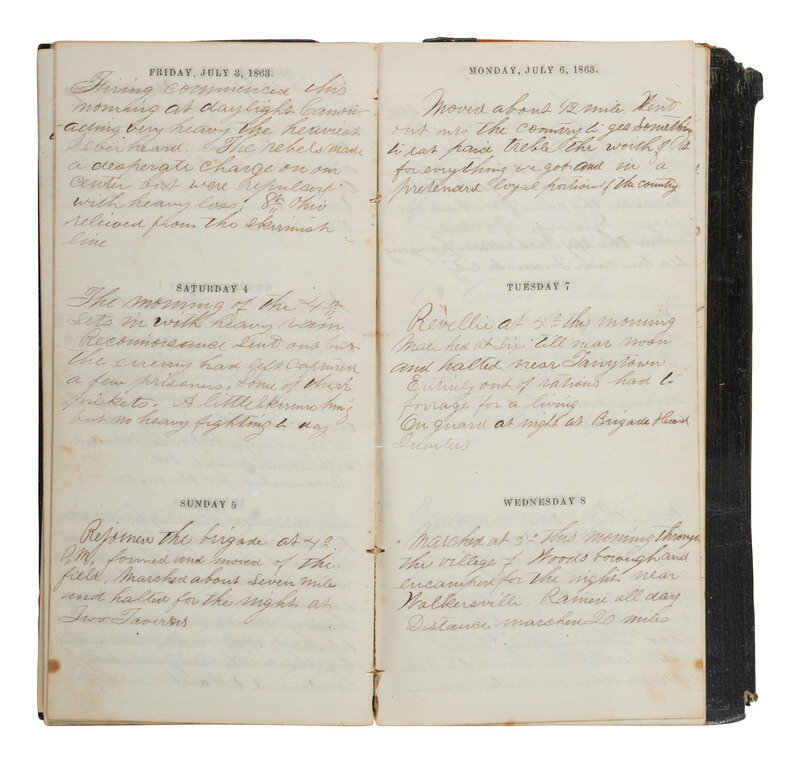 FRIDAY, JULY 3, 1863.
Firing commenced this
morning at daylight Canon-
ading very heavy the heaviest
I ever heard. The rebels made
a desperate charge on our
center but were repulsed
with heavy loss. 8th Ohio
releived from the skirmish
line
SATURDAY 4
The morning of the 4th
sets in with heavy rain
Reconnoisance sent out but
the enemy had left captured
a few prisoners, some of their
pickets. A little skirmishing
but no heavy fighting to day
SUNDAY 5
Rejoined the brigade at 4 o
P.M. formed and moved of the
field. Marched about seven mile
and halted for the night at
Two Taverns
MONDAY, JULY 6, 1863.
Moved about 1/2 mile Went
out into the country to get something
to eat paid treble the worth of
for everything we got and in a
pretended loyal portion of the country
TUESDAY 7
Revellie at 3 o the morning
Marched at six till near noon
and halted near Taneytown
Entirely out of rations had to
forrage for a living
On guard at night at Brigade Head
Quarters
WEDNESDAY 8
Marched at 5 o this morning through
the village of Woodsborough and
encamped for the night near
Walkersville, Rained all day
Distance marched 20 miles